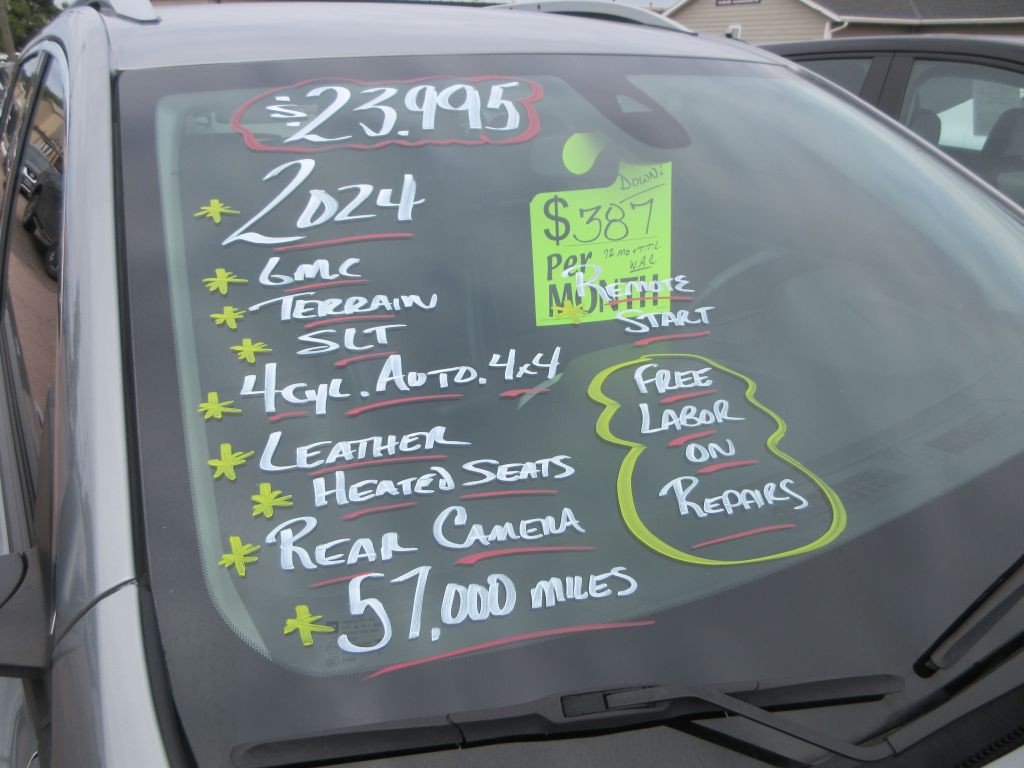 $23.995
2024
GMC
TERRAIN
SLT
4cyl. AUTO. 4x4
LEATHER
HEATED SEATS
REAR CAMERA
57,000 MILES
DOWN!
$387
Per
MONTH
W.A.C
REMOTE
START
FREE
LABOR
ON
REPAIRS